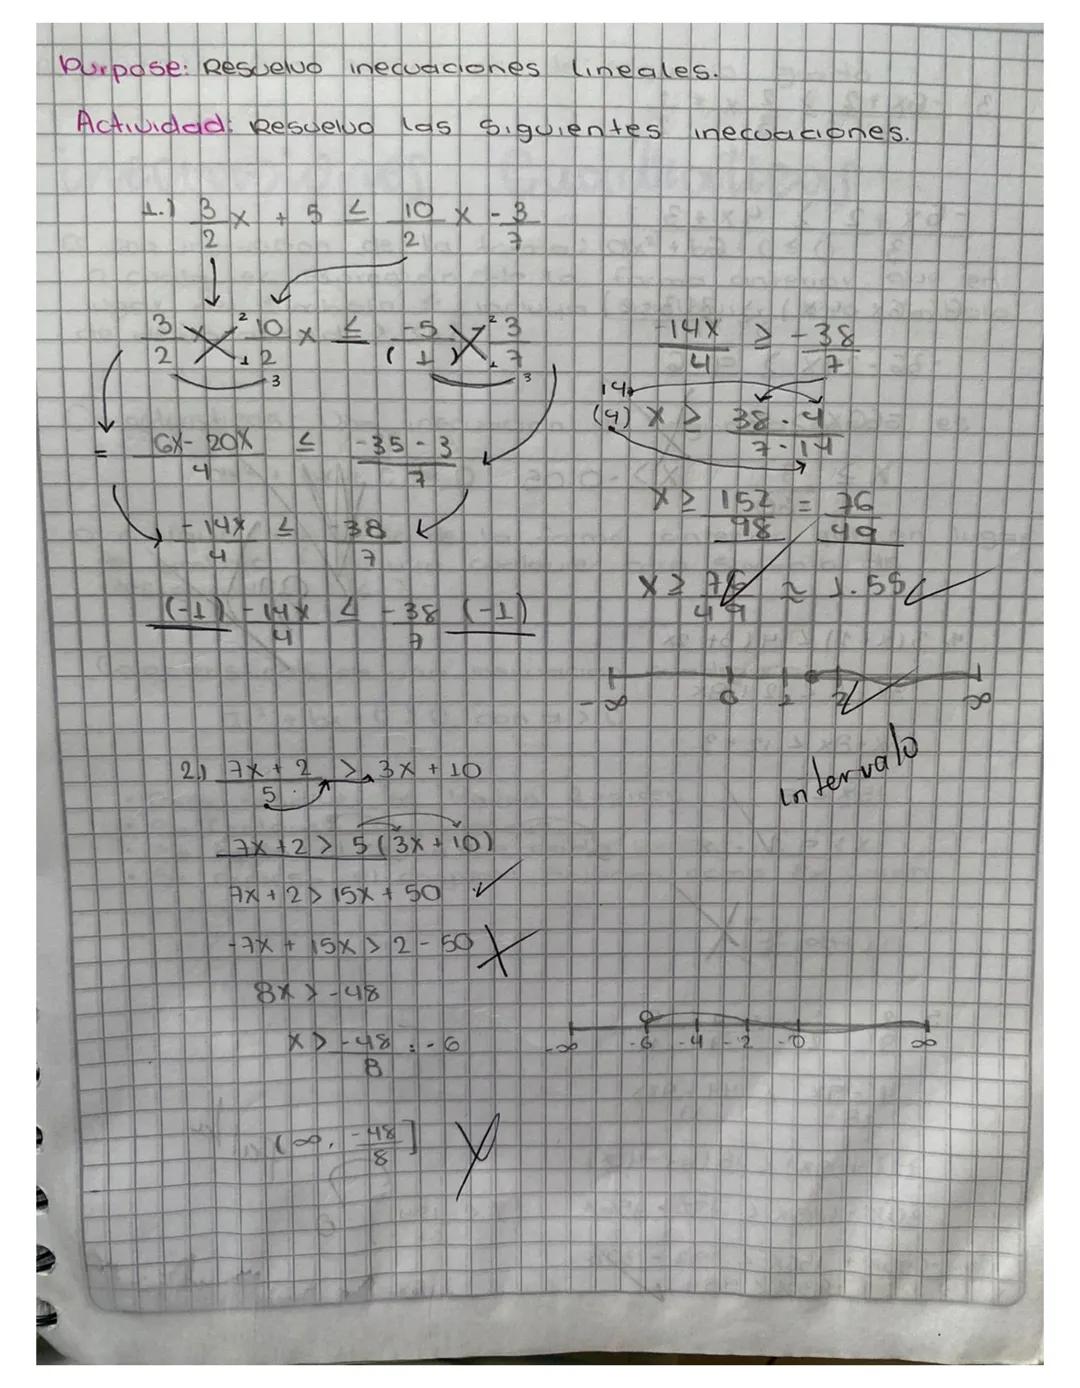 Purpose: Resuelvo inecuaciones lineales.
Actividad: Resuelvo las siguientes inecuaciones.
1.) 3/2 x + 5 ≤ 10/2 x - 3/7
3/2 x - 10/2 x ≤ -5/(1) - 3/7
= 6x - 20x / 4 ≤ -35 - 3 / 7
-14x/4 ≤ -38/7
(-1) -14x/4 ≤ -38/7 (-1)
-14x/4 ≥ -38/7
14
(4) x ≥ 38 · 4 / 7 · 14
x ≥ 152/98 = 76/49
x ≥ 76/49 ≈ 1.55
-∞ 0 1 2 ∞
intervalo
2.) 7x + 2 / 5 > 3x + 10
7x + 2 > 5 (3x + 10)
7x + 2 > 15x + 50
-7x + 15x > 2 - 50
8x > -48
x > -48/8 = -6
-∞ -6 -4 -2 -0 ∞
(∞, -48/8]